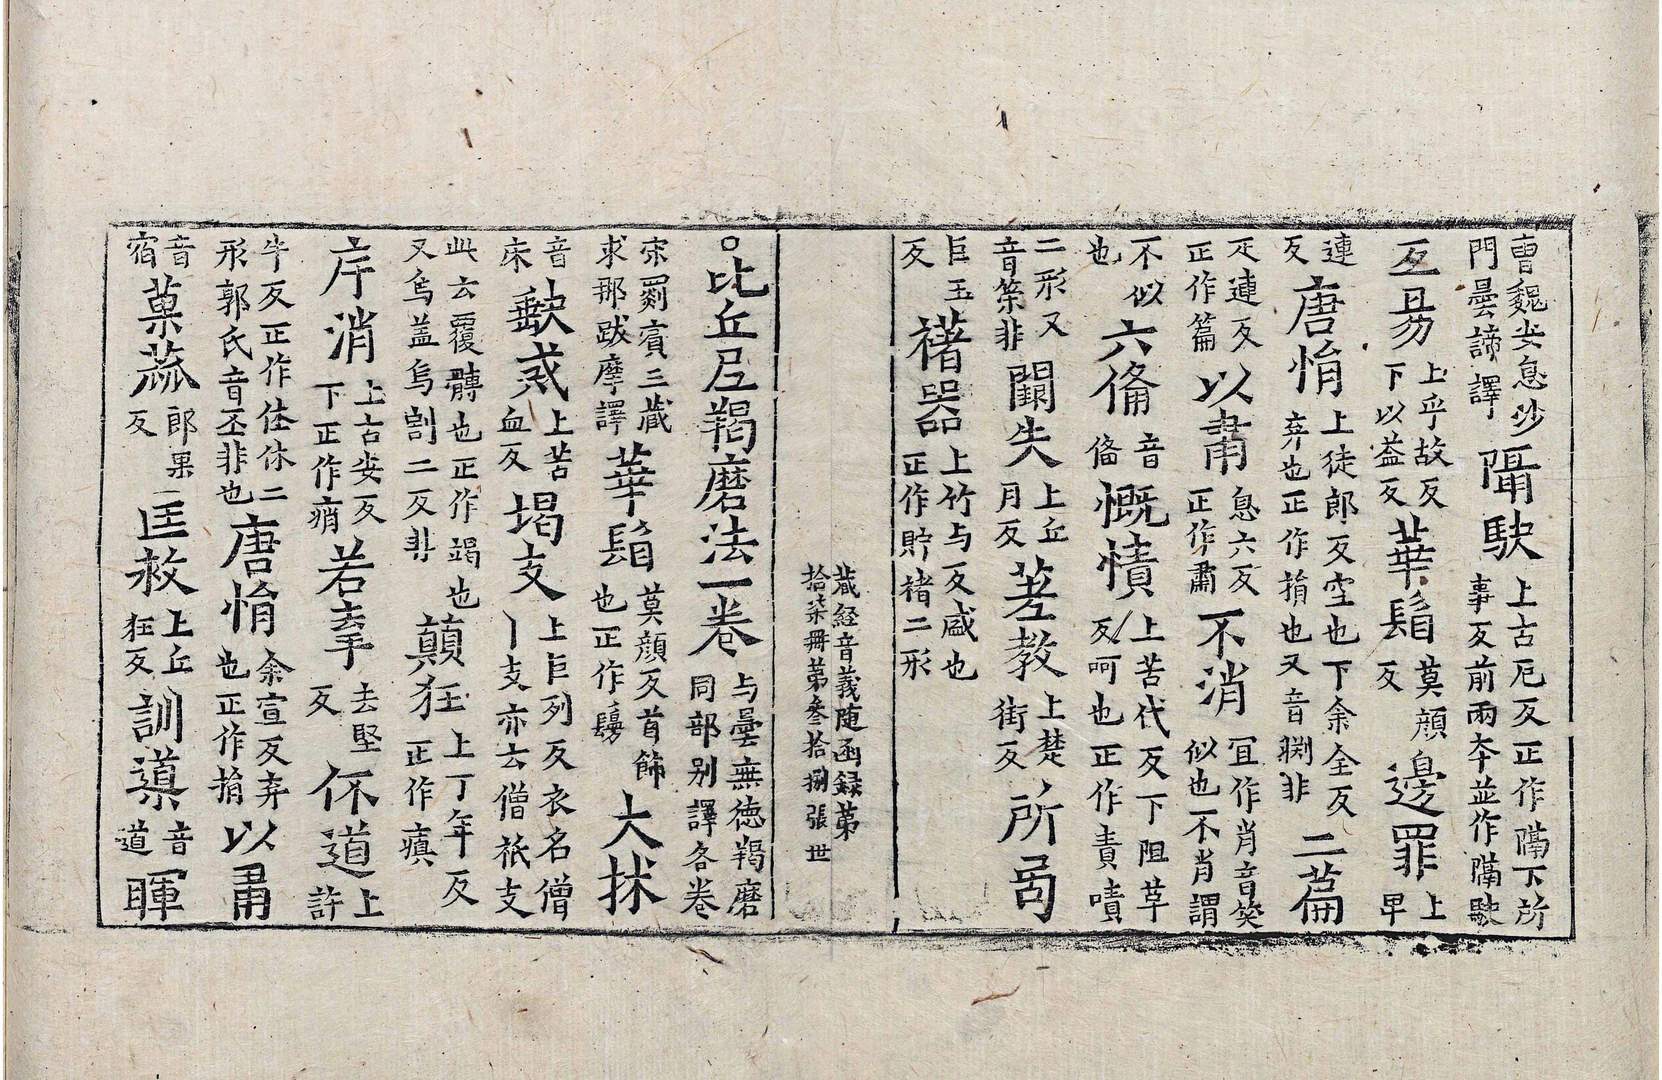 曹魏安息沙門曇諦譯 𨻶駃 上古厄反正作隔下所事反前兩夲並作隔駛
互易 上乎故反下以益反 華鬘 莫顔反 邊罪 上卑
連反 唐悁 上徒郎反空也下余全反弃也正作捐也又音𣶒非 二萹
疋連反正作篇 以肅 息六反正作肅 不消 冝作肖音笑似也不肖謂
不似也 六俻 音俻 慨憒 上苦代反下阻革反呵也正作責嘖
二形又音策非 闋失 上丘月反 𦍌教 上楚街反 所𠱾
巨玉反 禇器 上竹与反盛也正作貯褚二形
藏經音義随函録第拾柒冊第叄拾捌張 世
○比丘尼羯磨法一卷 与曇無徳羯磨同部别譯各卷
宋罽賓三藏求那跋摩譯 華鬘 莫顔反首飾也正作鬘 大𣑱
音床 𫘝戒 上苦血反 堨支 上巨列反衣名僧丨支亦云僧祇支
此云覆髆也正作竭也又烏盖烏割二反非 蘏狂 上丁年反正作瘨
㡿消 上古安反下正作痟 若牽 去堅反 伱道 上許
牛反正作𠇾休二形郭氏音丕非也 唐悁 余宣反弃也正作捐 以肅
音宿 菓蓏 郎果反 匡救 上丘狂反 訓導 音道 暉